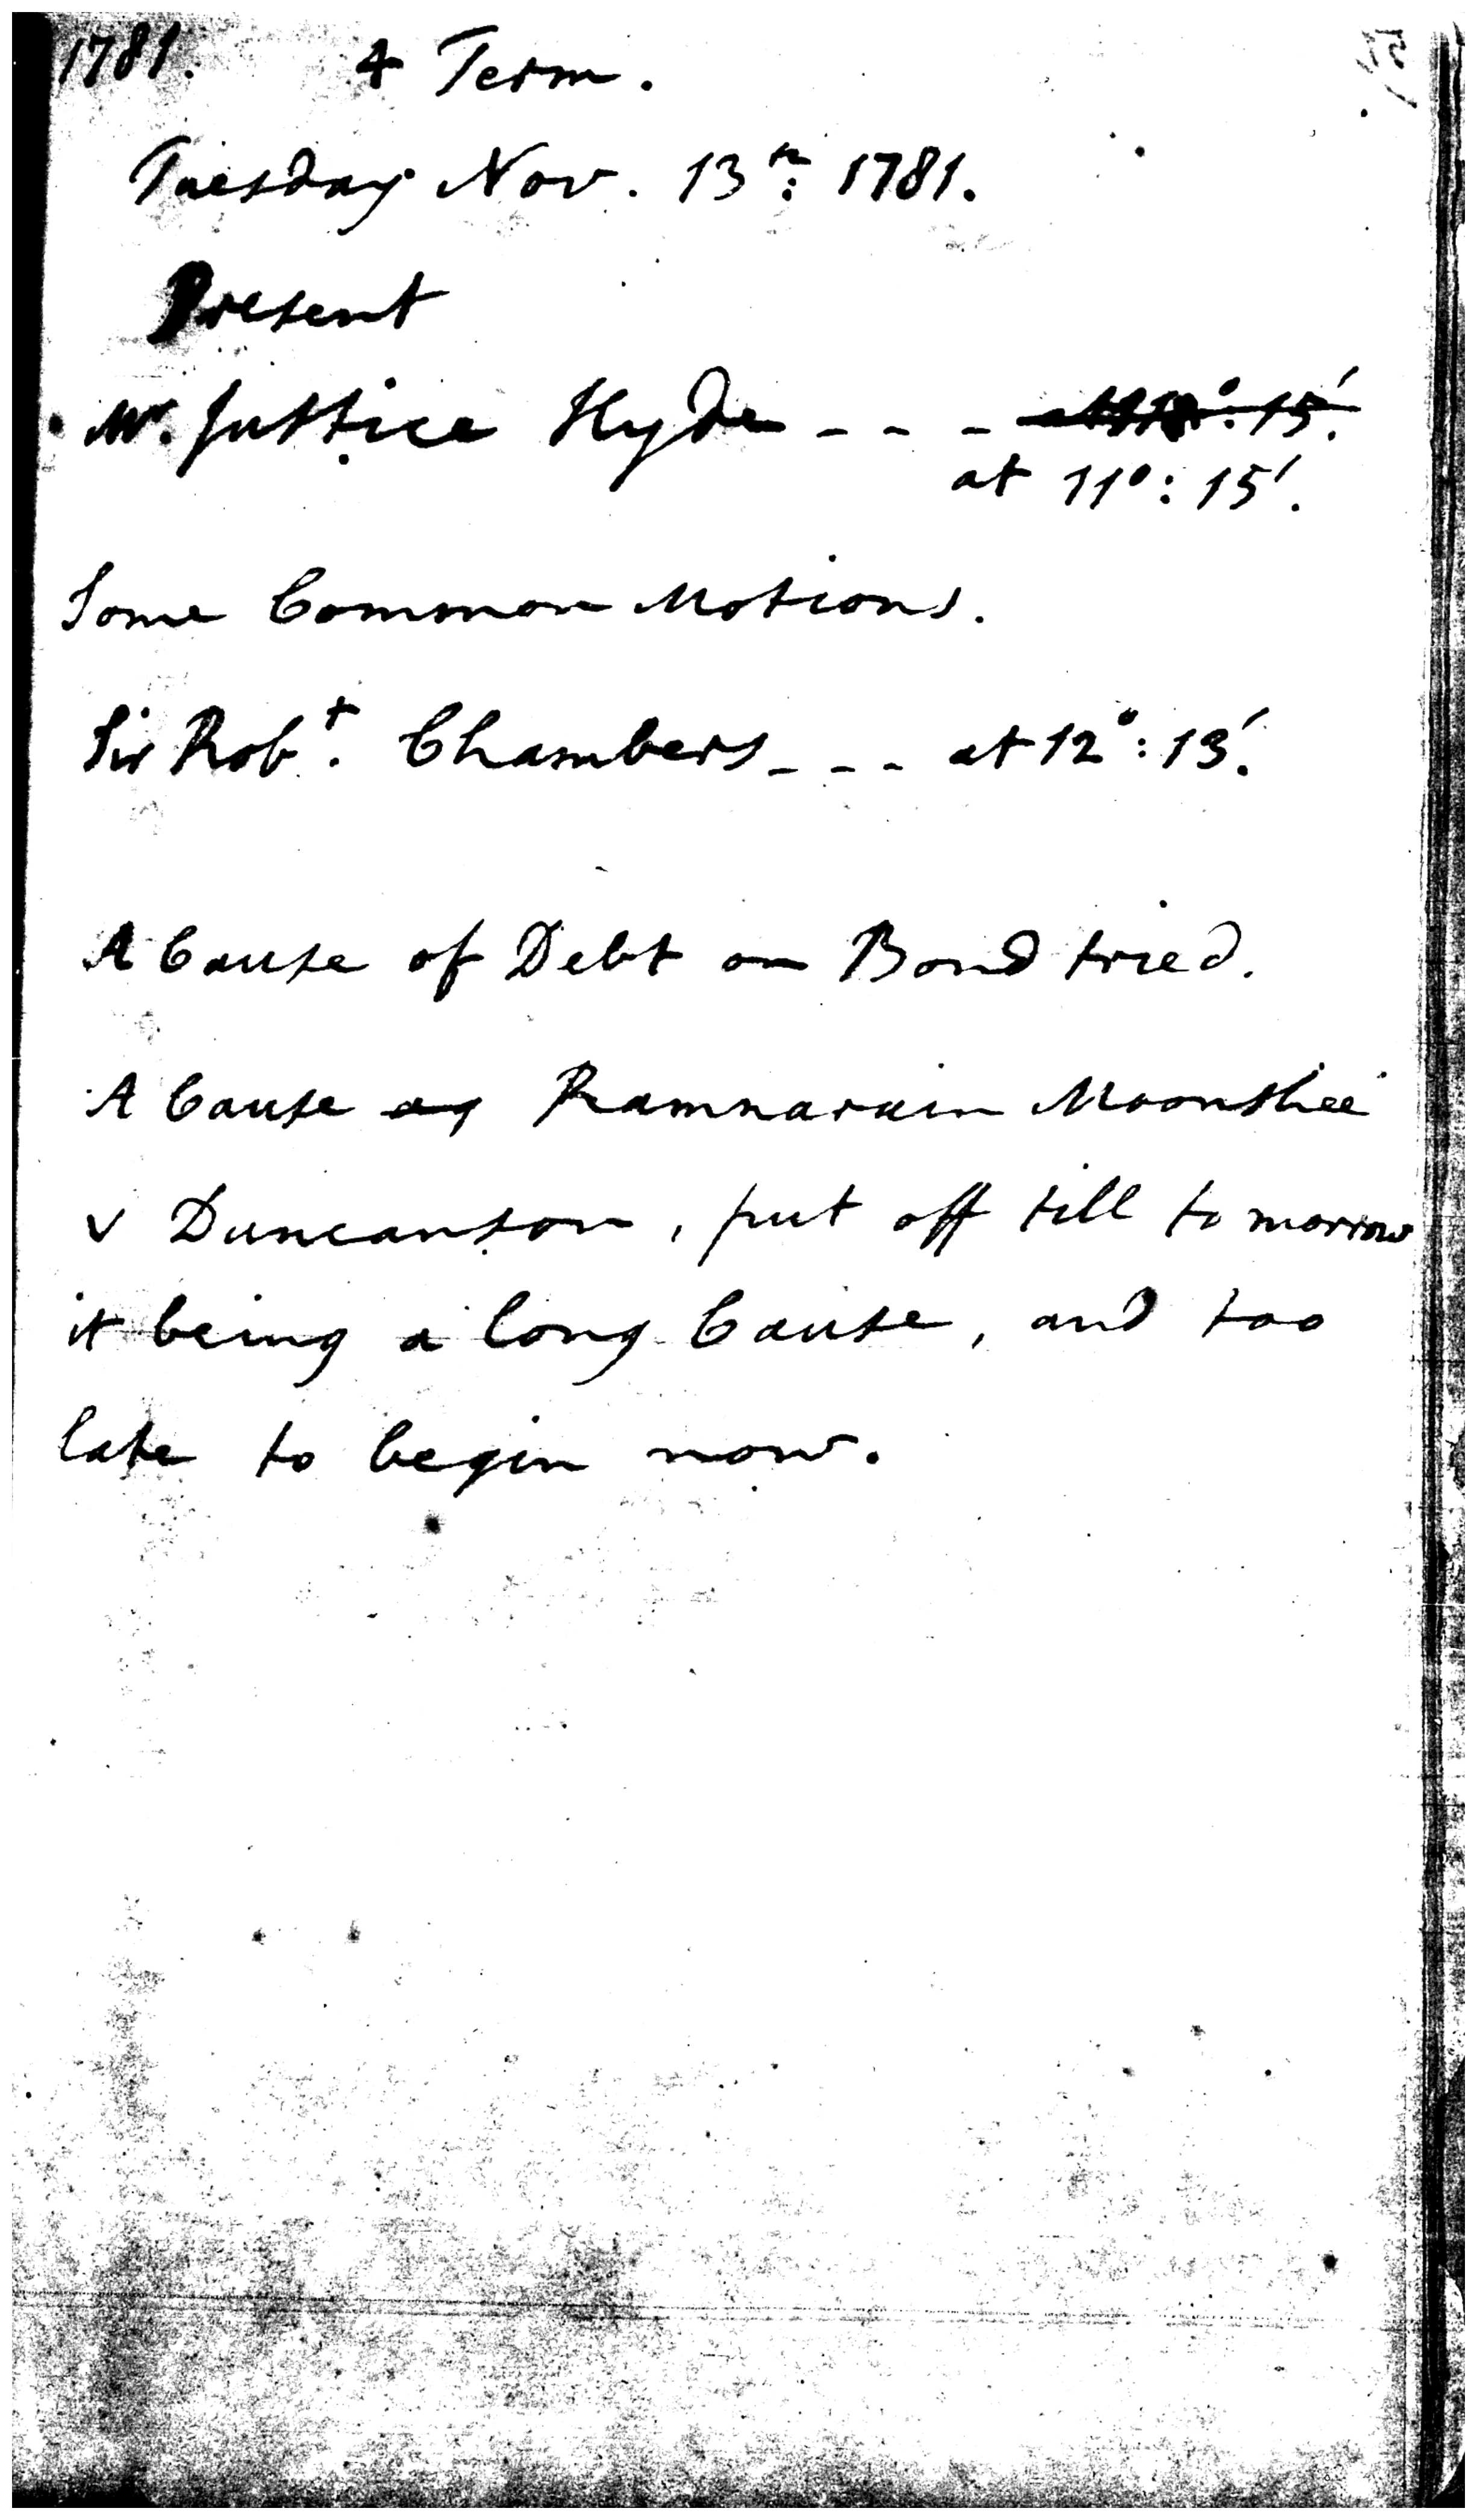 1781. 4 Term.
Tuesday Nov. 13th: 1781.
Present
Mr. Justice Hyde - - -
at 11°: 15'.
Some Common Motions.
Sir Robt. Chambers - - - at 12°: 13'.
A Cause of Debt on Bond tried.
A Cause ag Ramnarain Moonshee
v Duncanson, put off till to morrow
it being a long Cause, and too
late to begin now.